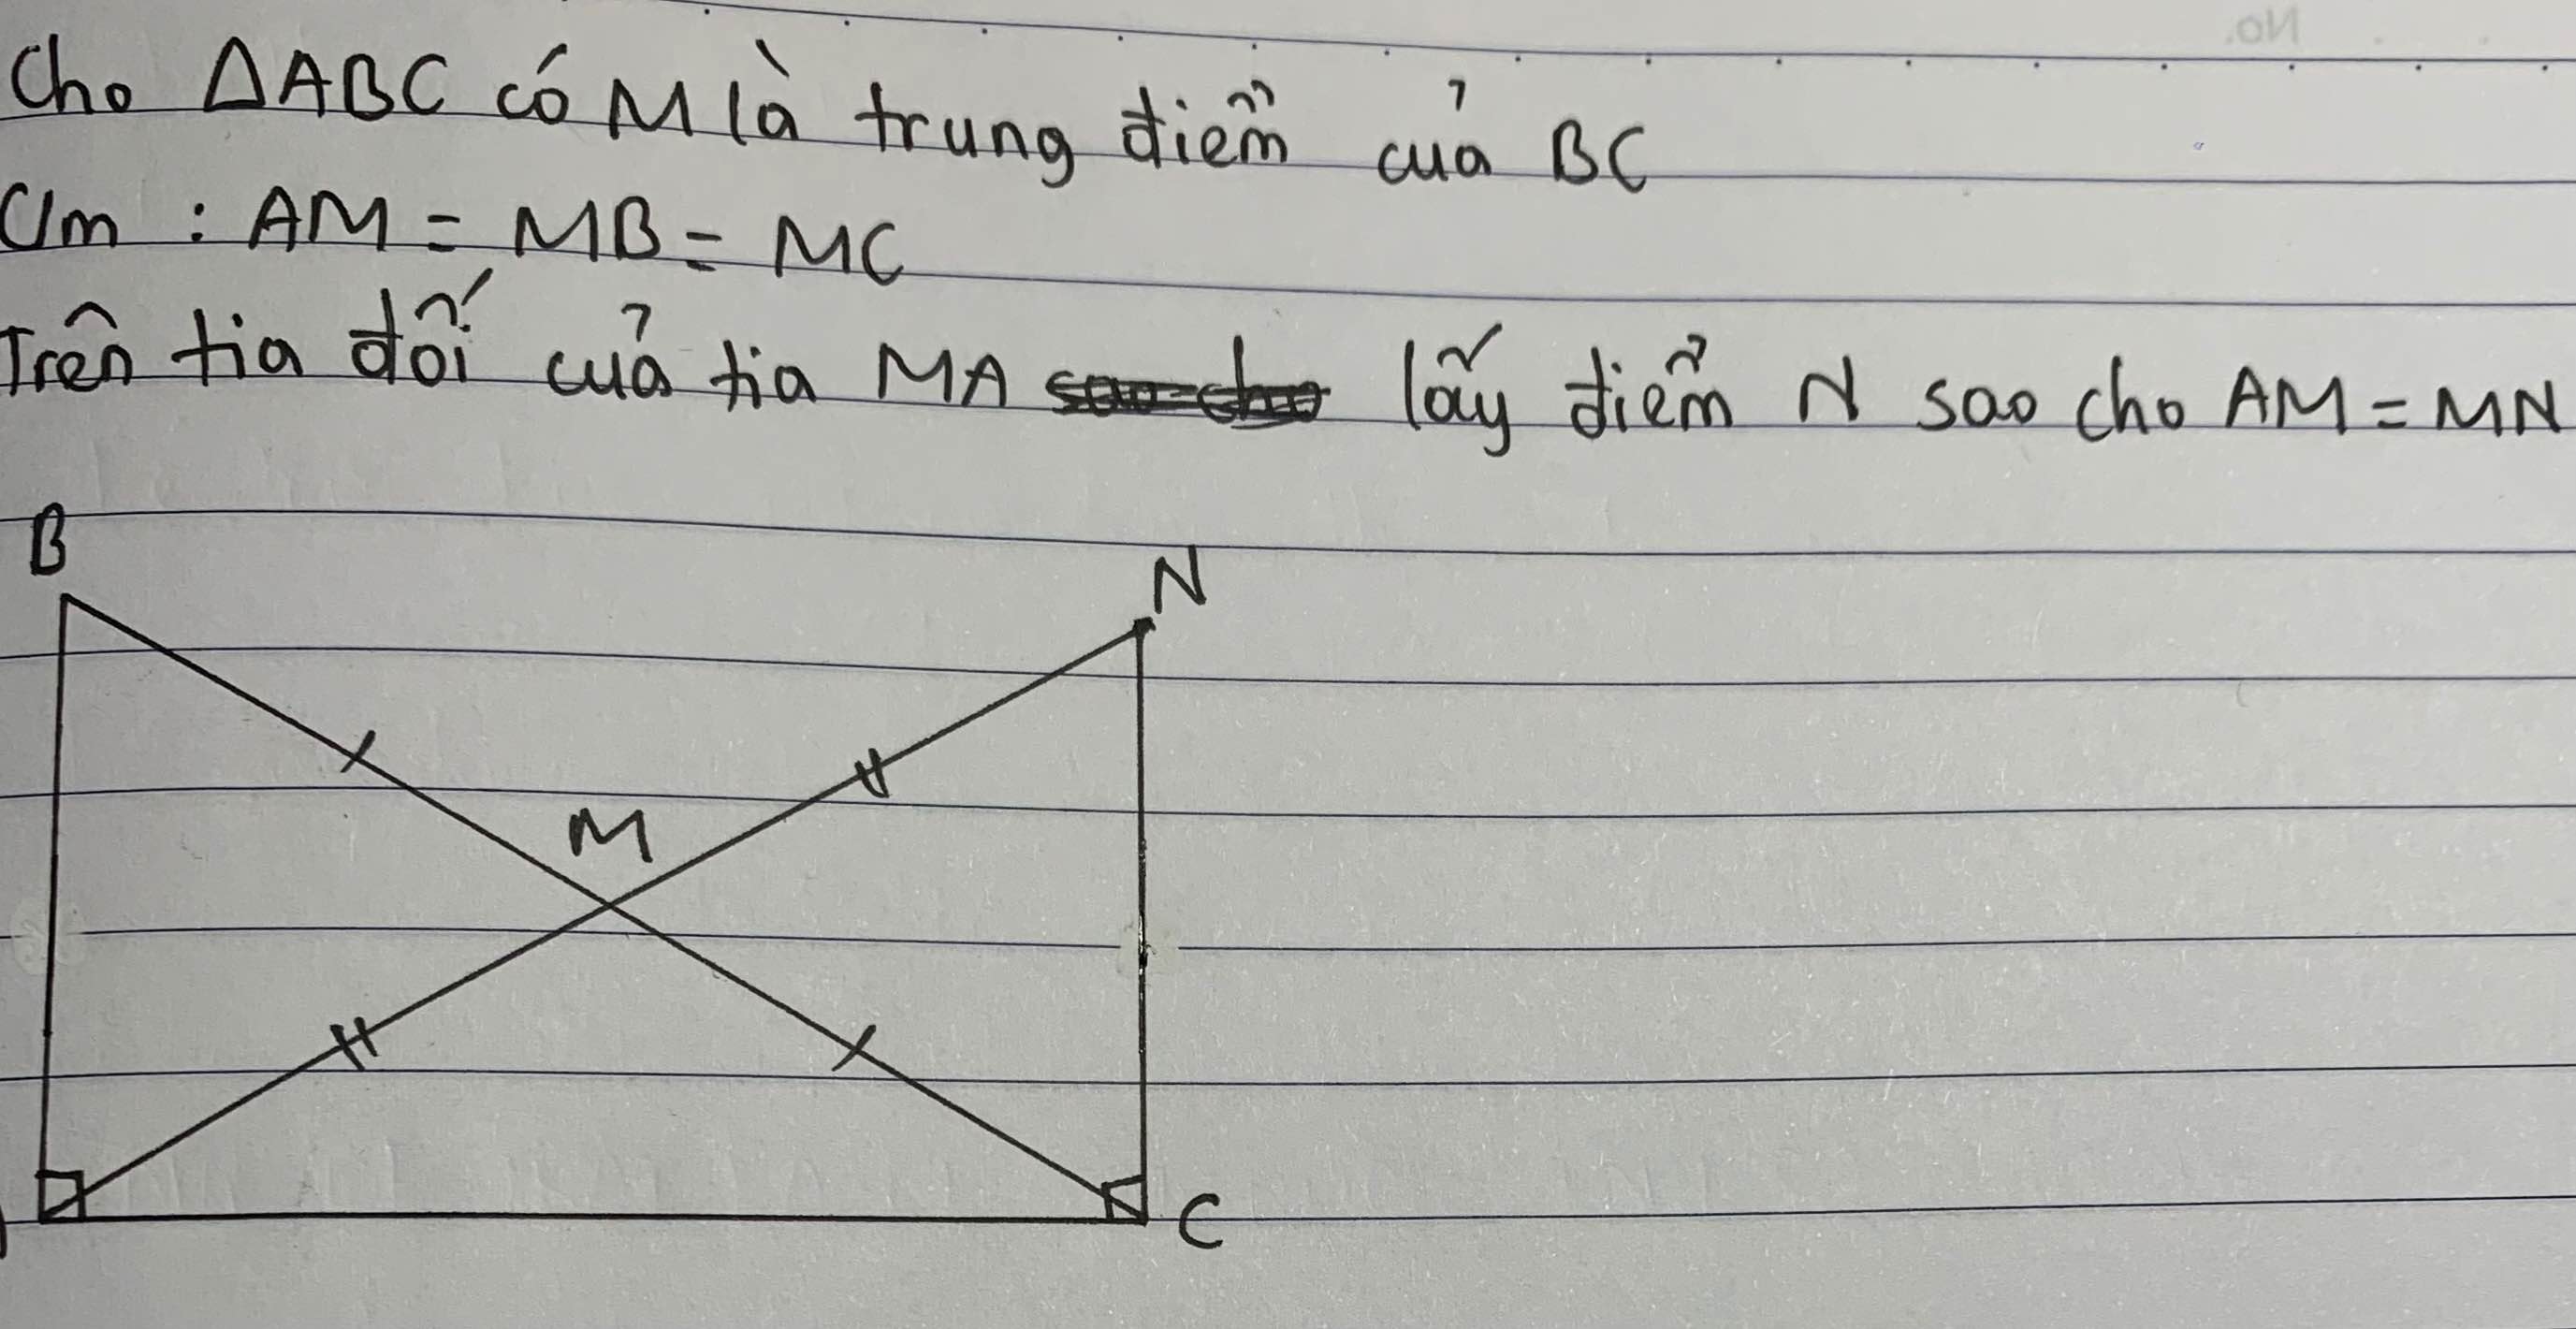 Cho ΔABC có M là trung điểm của BC
C/m : AM = MB = MC
Trên tia đối của tia MA lấy điểm N sao cho AM = MN
B
N
M
C